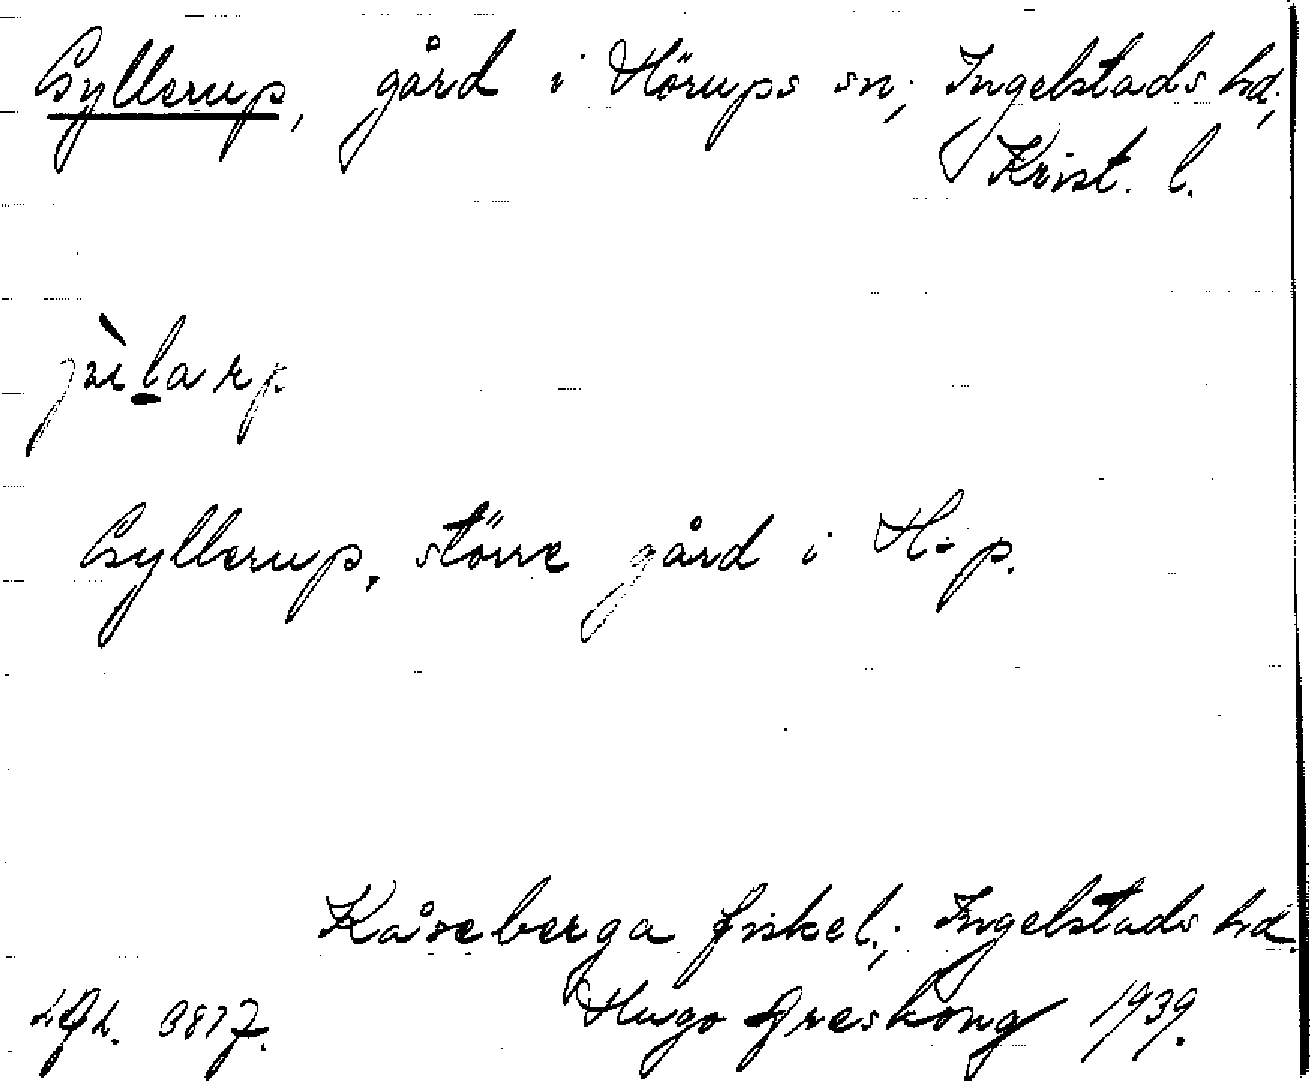 Gyllerup, gård i Hörups sn; Ingelstads hd;
Krist. l.
Gyllerup, större gård i H-p.
Kåseberga fiskel.; Ingelstads hd.
Hugo Areskoug 1939.